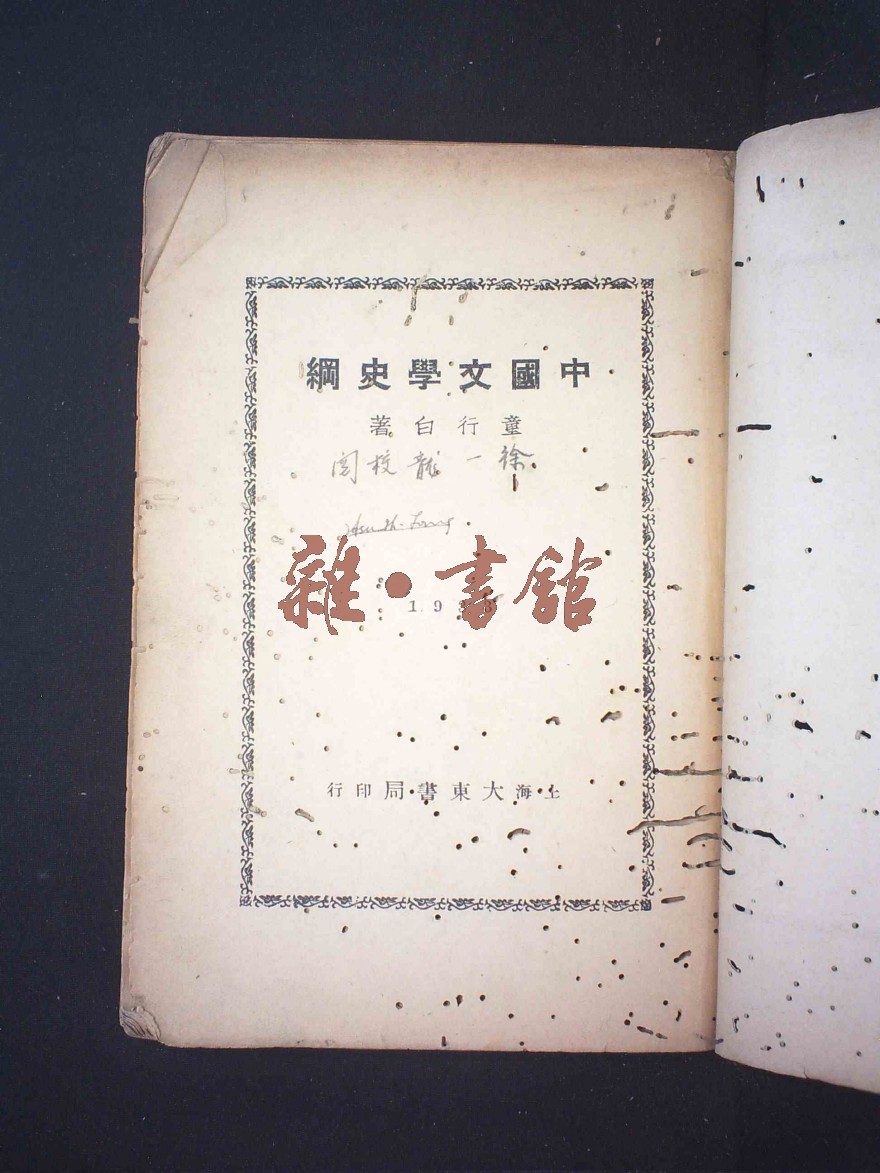 中國文學史綱
童行白著
徐一龍校閱
雜·書館
1933
上海大東書局印行